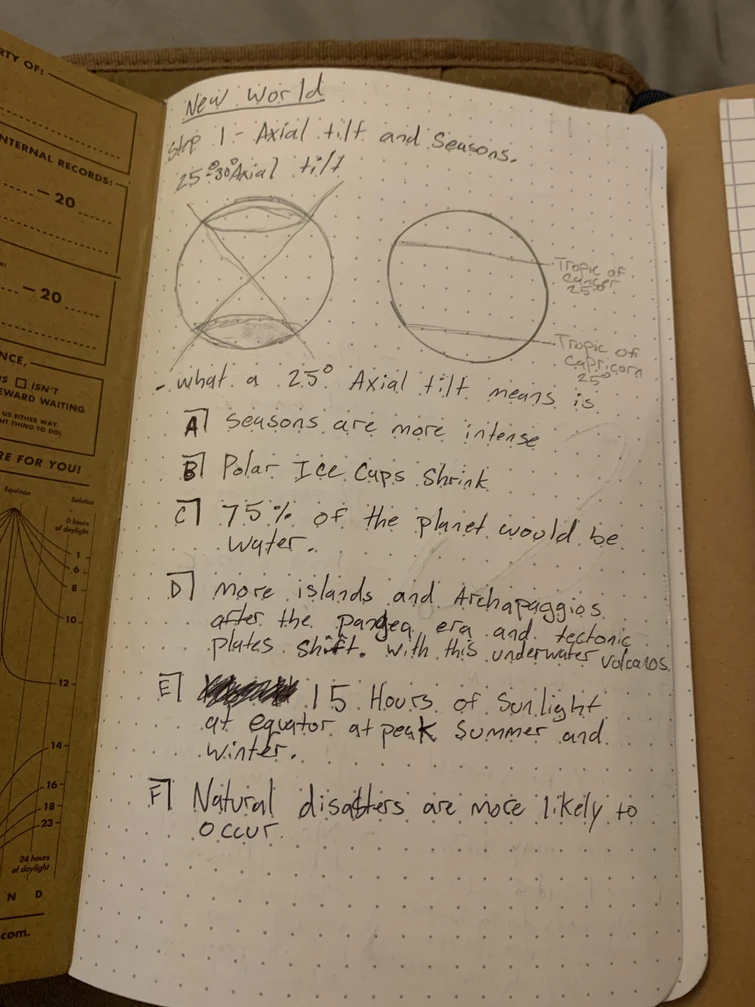 RTY OF:
NTERNAL RECORDS:
– 20
– 20
NCE,
IS ☐ ISN'T
EWARD WAITING
US EITHER WAY.
HT THING TO DO!
E FOR YOU!
Equinox
Solstice
0 hours
of daylight
1
6
8
10
12
14
16
18
23
24 hours
of daylight
N D
.com.
New World
Step 1 - Axial tilt and Seasons.
25°-30° Axial tilt
Tropic of
cancer
25°
Tropic of
capricorn
25°
- what a 25° Axial tilt means is
A] Seasons are more intense
B] Polar Ice Caps Shrink
C] 75% of the planet would be
water.
D] more islands and Archapaggios
after the pangea era and tectonic
plates shift. with this underwater volcanos.
E] 15 Hours of Sunlight
at equator at peak Summer and
winter.
F] Natural disasters are more likely to
occur